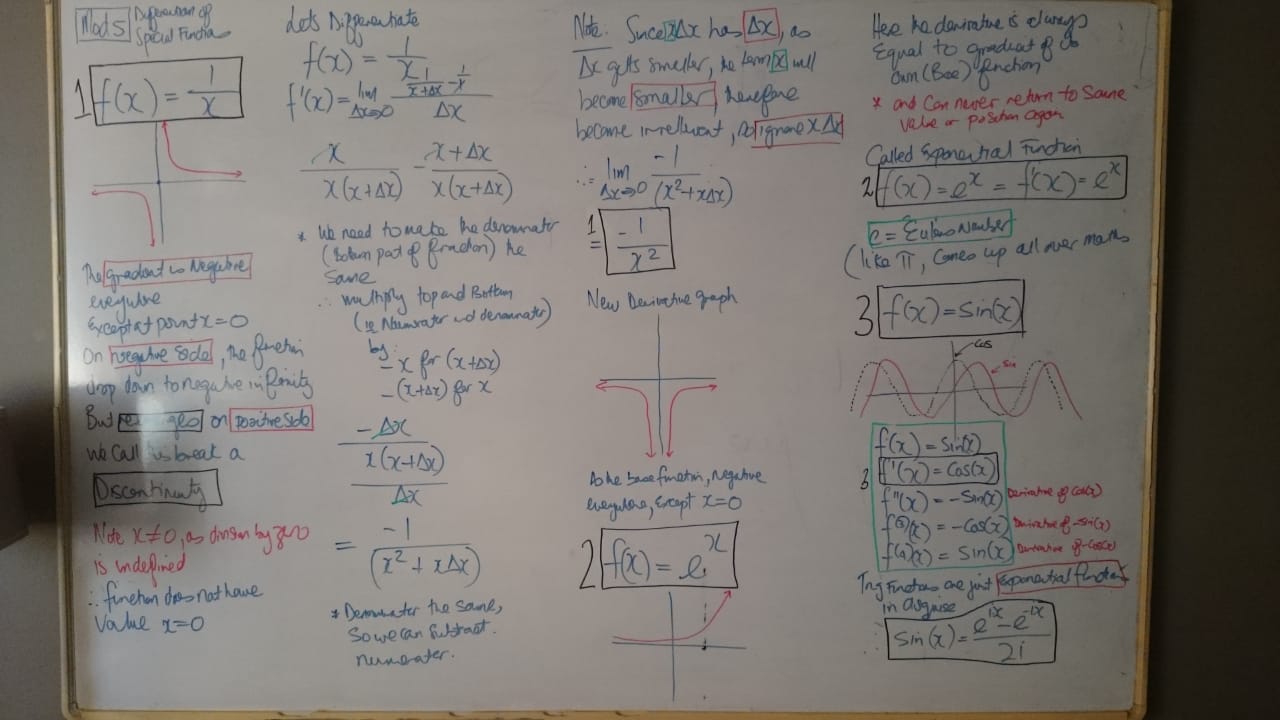 Mod 5
Differentiation of
Special Functions
1 f(x) = 1/x
The gradient is Negative
everywhere
Except at point x=0
On negative side, the function
drop down to negative infinity
But on positive side
We Call this break a
Discontinuity
Note x≠0, as division by zero
is undefined
∴ function does not have
Value x=0
Lets Differentiate
f(x) = 1/x
f'(x) = lim Δx→0 (1/(x+Δx) - 1/x)/Δx
x/(x(x+Δx)) - (x+Δx)/(x(x+Δx))
* We need to make the denominater
(bottom part of fraction) the
same
∴ multiply top and Bottom
(ie Numerater and denominater)
by:
- x for (x+Δx)
- (x+Δx) for x
(-Δx/(x(x+Δx)))/Δx
= -1/(x²+xΔx)
* Denominater the same,
So we can Subtract
numerater.
Note: Since xΔx has Δx, as
Δx gets smaller, the term x will
become smaller, therefore
become irrellevant, so ignore xΔx
∴= lim Δx→0 -1/(x²+xΔx)
1 = -1/x²
New Derivative graph
As the base function, Negative
everywhere, Except x=0
2 f(x) = e^x
Here the derivative is always
Equal to gradient of its
own (Base) function
* and Can never return to Same
Value or position again
Called Exponential Function
2 f(x) = e^x = f'(x) = e^x
e = Eulers Number
(like π, Comes up all over maths
3 f(x) = Sin(x)
Cos
Sin
f(x) = Sin(x)
3 f'(x) = Cos(x)
f''(x) = -Sin(x) Derivative of Cos(x)
f(3)(x) = -Cos(x) Derivative of -Sin(x)
f(4)(x) = Sin(x) Derivative of -Cos(x)
Trig Functions are just Exponential functions
in disguise
∴ Sin(x) = (e^ix - e^-ix)/2i